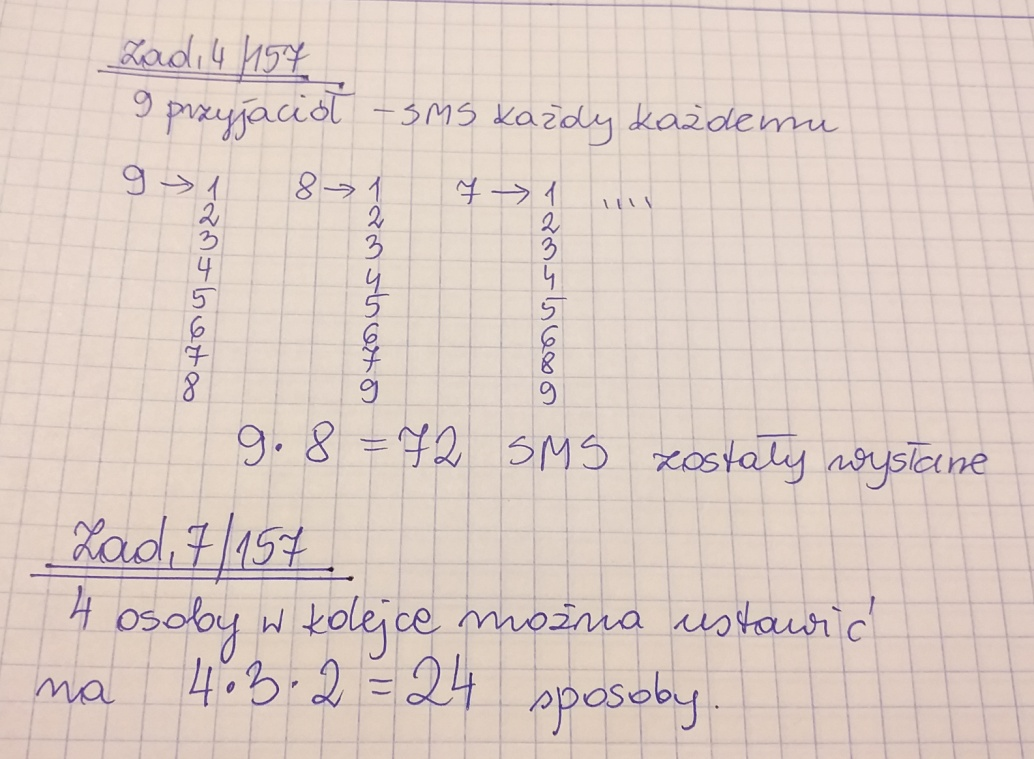 Zad. 4/157
9 przyjaciół - SMS każdy każdemu
9 → 1 8 → 1 7 → 1 ....
2 2 2
3 3 3
4 4 4
5 5 5
6 6 6
7 7 8
8 9 9
9 · 8 = 72 SMS zostały wysłane
Zad. 7/157
4 osoby w kolejce można ustawić
na 4 · 3 · 2 = 24 sposoby.